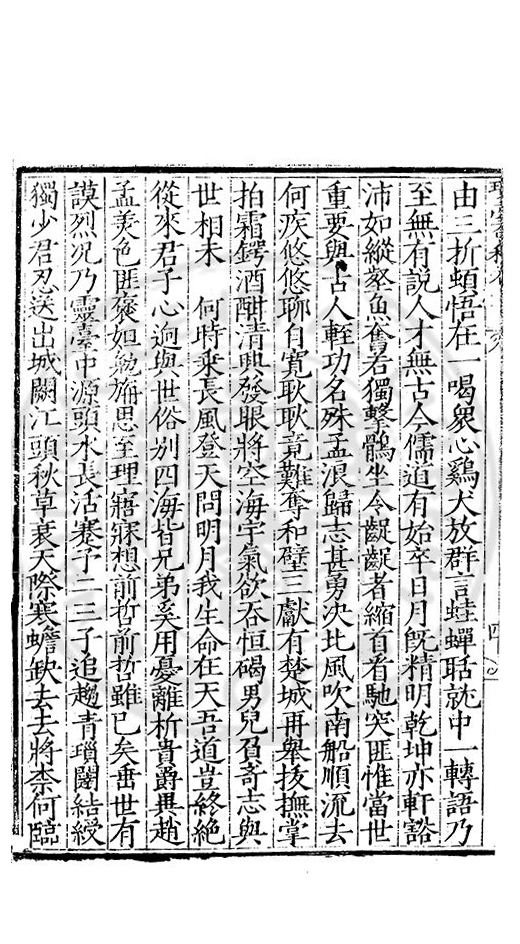 由三折蝢悟在一喝衆心鷄犬放群言蛙蟬聒就中一轉語乃
至無有説人才無古今儒道有始卒日月旣精明乾坤亦軒豁
沛如縱壑魚奮若獨擊鶻坐令齪齪者縮首看馳突匪惟當世
重要與古人輊功名殊孟浪歸志甚勇决北風吹南船順流去
何疾悠悠聊自寬耿耿竟難奪和璧三獻有楚城再舉拔撫掌
拍霜鍔酒酣清興發眼將空海宇氣欲吞恒碣男兒負奇志與
世相未 何時乘長風登天問明月我生命在天吾道豈終絶
從來君子心逈與世俗别四海皆兄弟奚用憂離析貴爵畢趙
孟美色匪襃姐勉旃思至理寤寐想前哲前哲雖已矣垂世有
謨烈况乃靈臺中源頭水長活蹇予二三子追趨青瑣闥結綬
獨少君忍送出城闕江頭秋草衰天際寒蟾缺去去將柰何臨
四